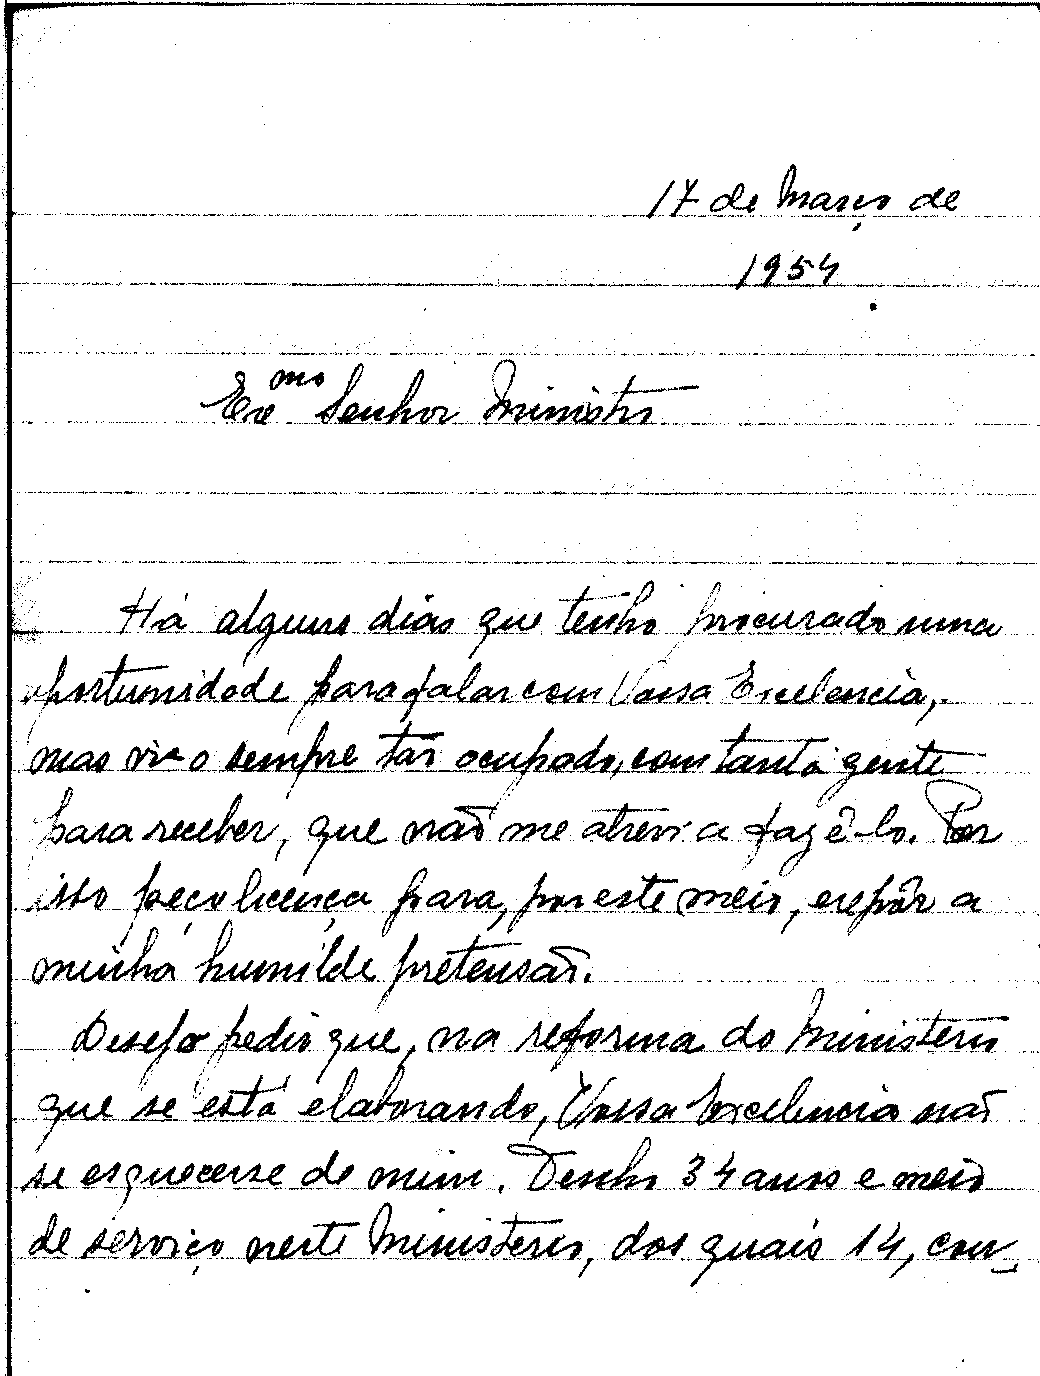 17 de Março de
1954
Exmo Senhor Ministro
Há alguns dias que tenho procurado uma
oportunidade para falar com Vossa Excelência,
mas vi-o sempre tão ocupado, com tanta gente
para receber, que não me atrevi a fazê-lo. Por
isso peço licença para, por este meio, expôr a
minha humilde pretensão.
Desejo pedir que, na reforma do Ministério
que se está elaborando, Vossa Excelência não
se esquecesse de mim. Tenho 34 anos e meio
de serviço neste Ministério, dos quais 14, con-